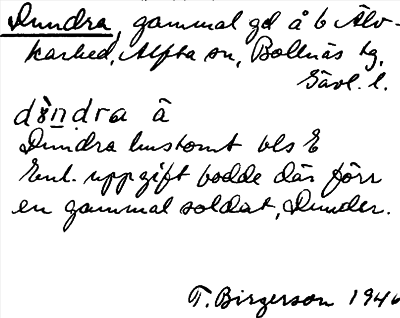 Dundra, gammal gd å b Älv-
karhed, Alfta sn, Bollnäs tg,
Gävl. l.
dùndra å
Dundra hustomt vls E
Enl. uppgift bodde där förr
en gammal soldat, Dunder.
T. Birgerson 1946